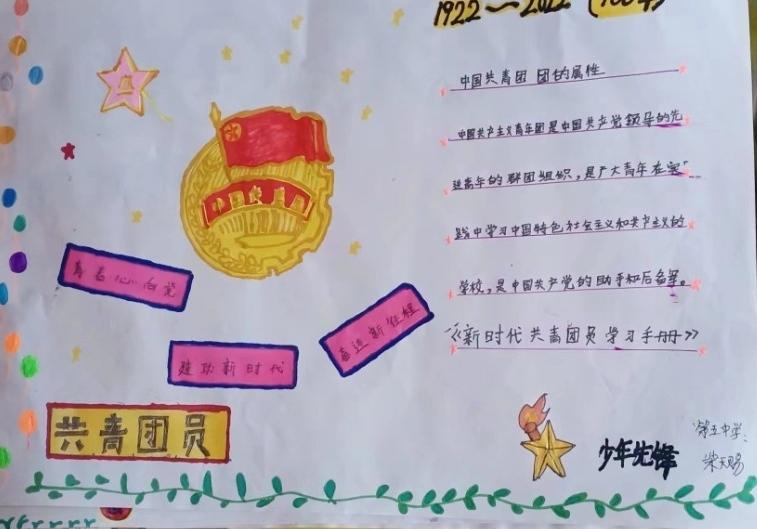 1922~2022 (100年)
中国共青团 团的属性
中国共产主义青年团是中国共产党领导的先
进青年的群团组织，是广大青年在实
践中学习中国特色社会主义和共产主义的
学校，是中国共产党的助手和后备军。
《新时代共青团员学习手册》
中国共青团
青春心向党
建功新时代
喜迎新征程
共青团员
少年先锋
第五中学：